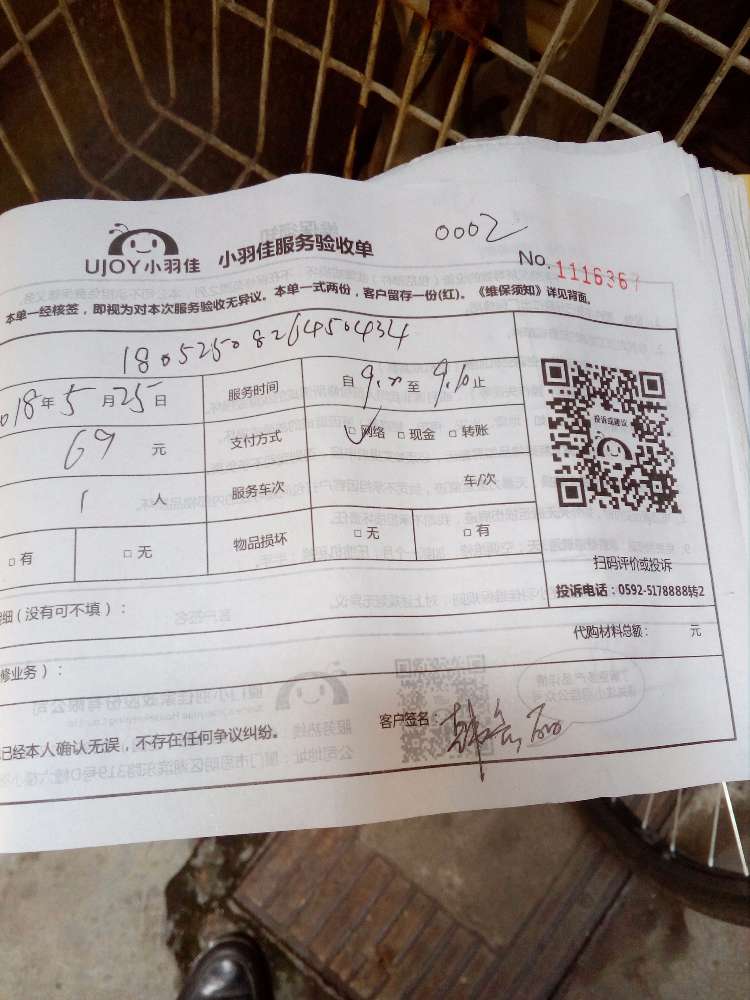 0002
UJOY小羽佳 小羽佳服务验收单
No. 1116367
本单一经核签，即视为对本次服务验收无异议。本单一式两份，客户留存一份(红)。《维保须知》详见背面。
180525082645 0434
018年5月25日 服务时间 自 9: 至 9:10 止
69 元 支付方式 □网络 □现金 □转账
1 人 服务车次 车/次
□有 □无 物品损坏 □无 □有
投诉或建议
扫码评价或投诉
投诉电话：0592-5178888转2
细（没有可不填）：
代购材料总额： 元
修业务）：
客户签名：
已经本人确认无误，不存在任何争议纠纷。